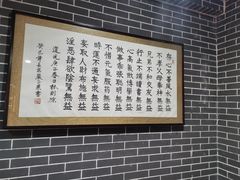 存心不善風水無益
不孝父母奉神無益
兄弟不和交友無益
行止不端讀書無益
心高氣傲博學無益
做事乖張聰明無益
不惜元氣服藥無益
時運不通妄求無益
妄取人財布施無益
淫惡肆欲陰騭無益
林則徐